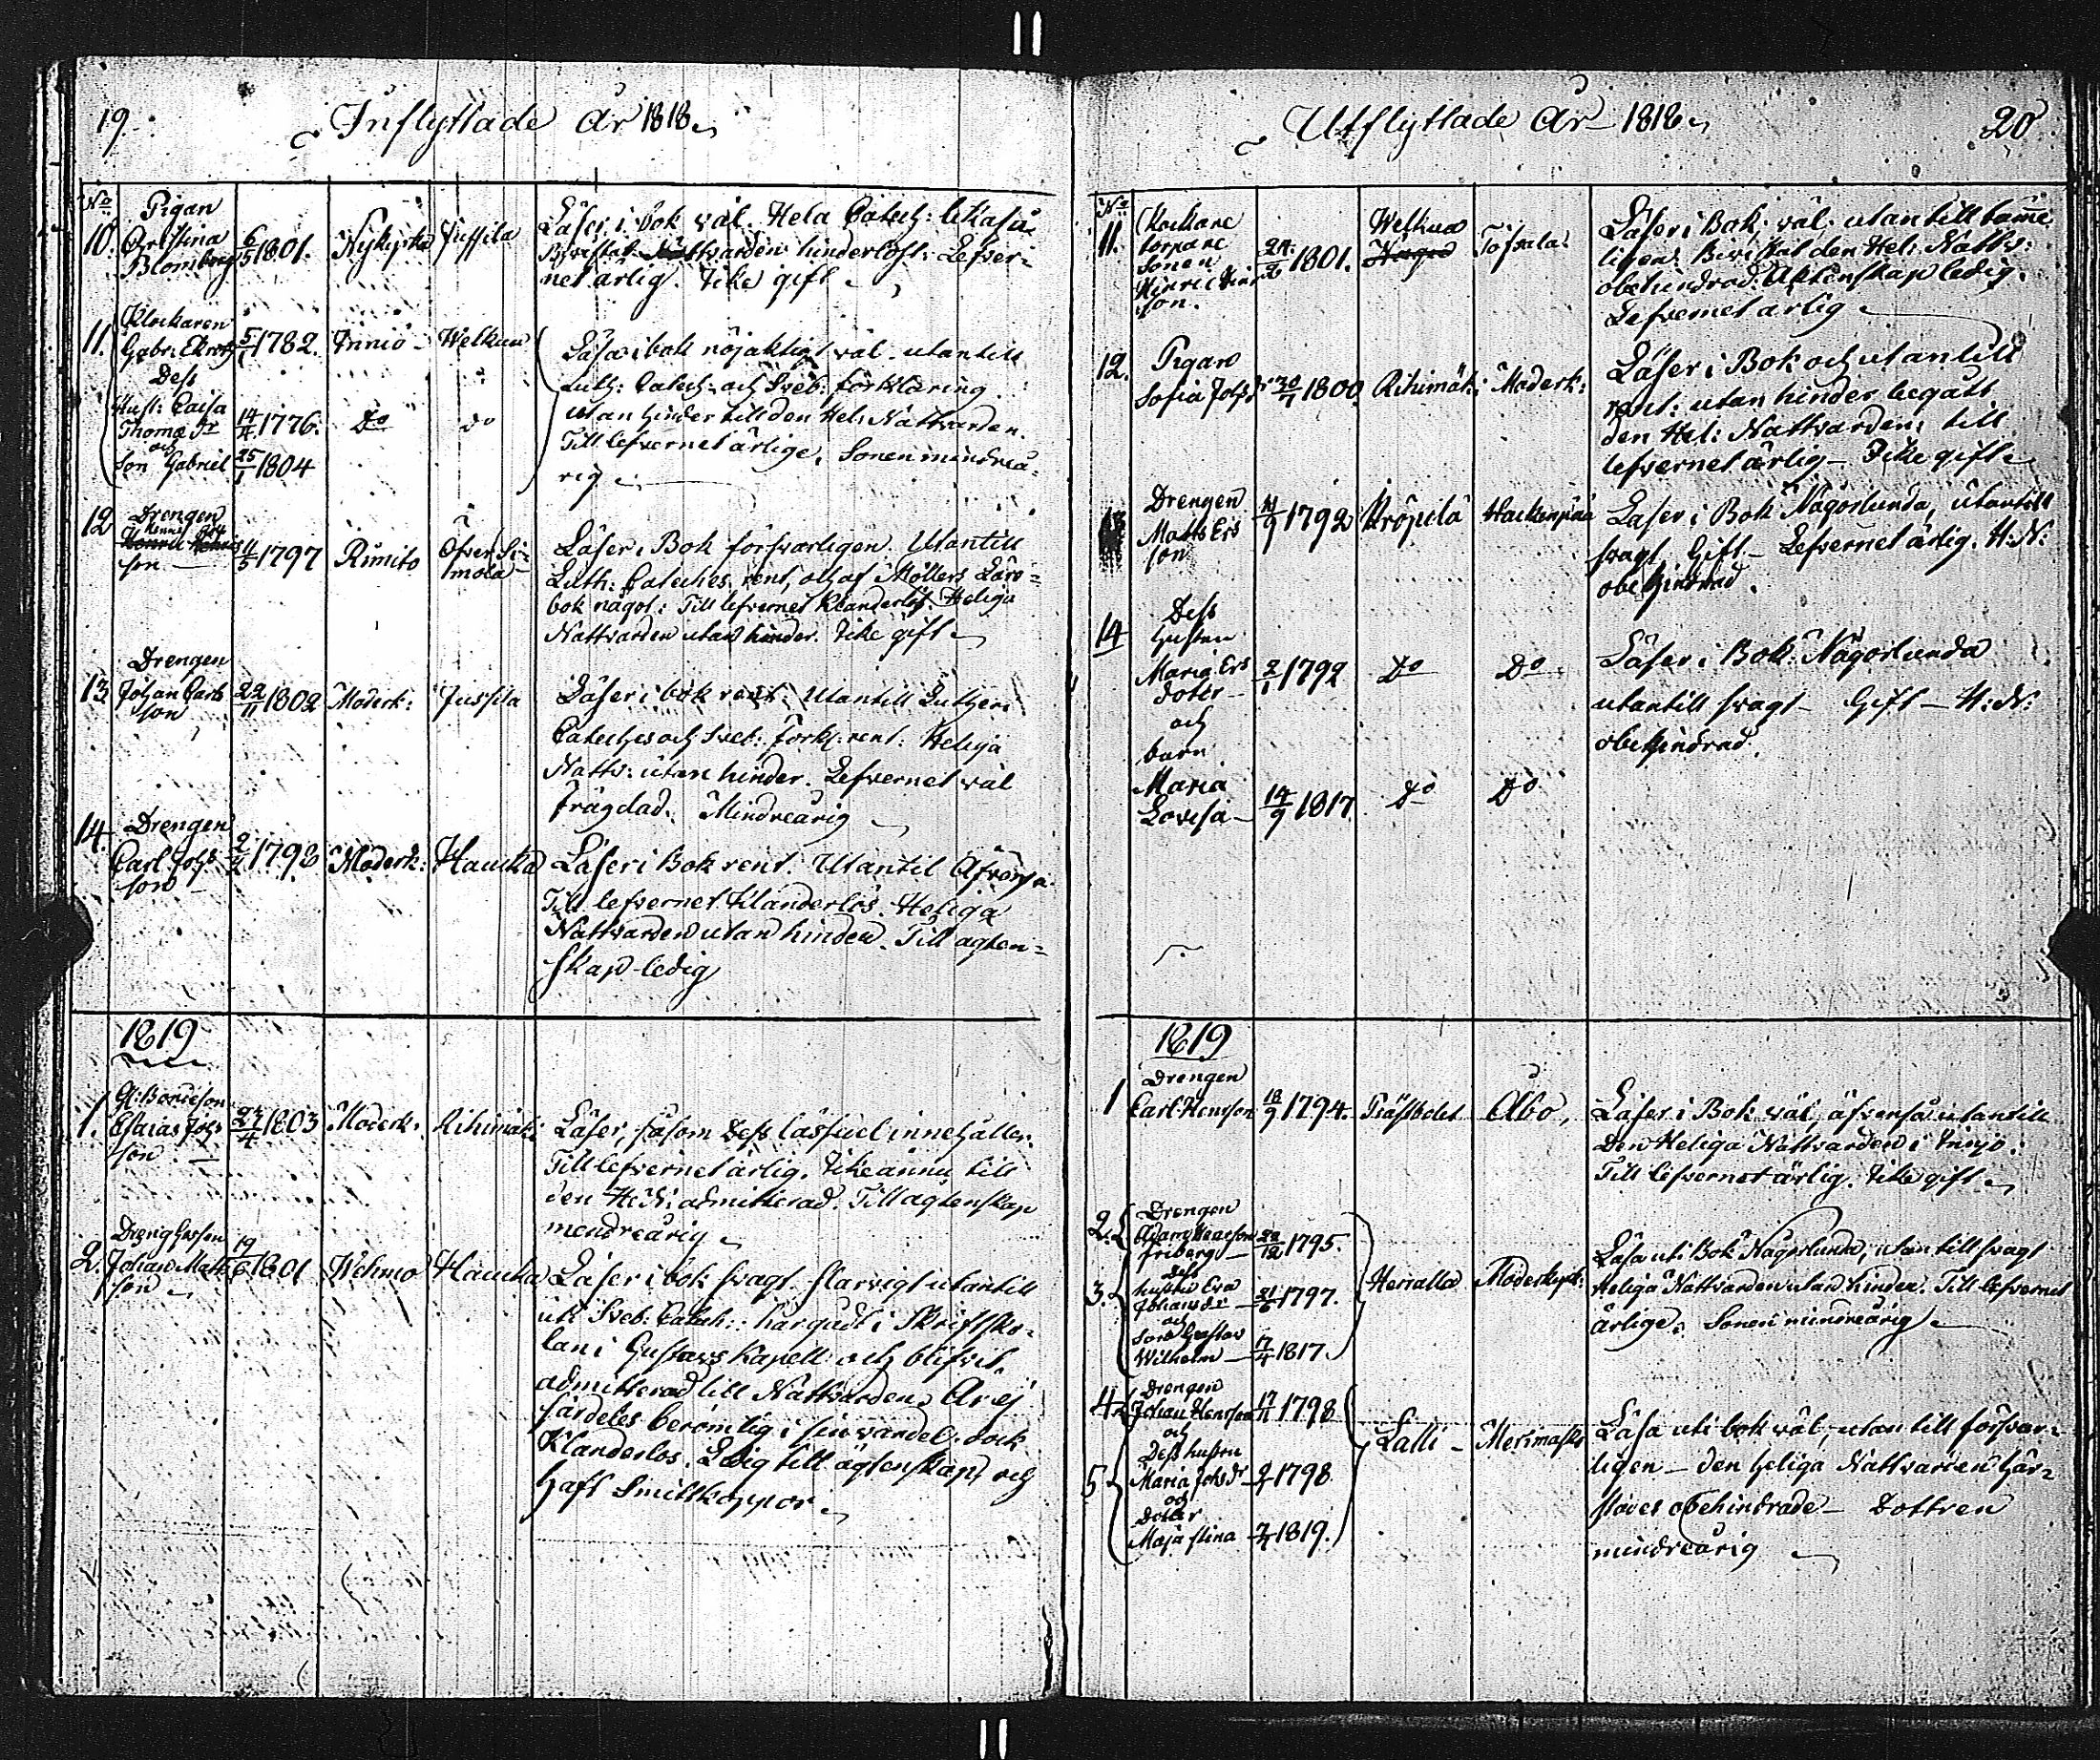 19
Inflyttade År 1818
No
10.
Pigan
Christina
Blomberg
6/5 1801.
Nykyrka
Jussila
Läser i bok väl. Hela Catech: likaså
Bevistat Nattvarden hinderlöst. Lefver-
net ärlig. Icke gift
11.
Klockaren
Gabr: Ekroth
5/1 1782.
Iniö
Welkua
Dess
Hust: Caisa
Thomæ dr
14/4 1776.
Do
Do
och
Son Gabriel
25/1 1804
Läsa i bok nöjaktigt väl. utantill
Luth: Catech: och Sveb: förklaring
utan hinder till den Hel: Nattvarden.
Till lefvernet ärlige. Sonen mindreå-
rig
12
Drengen
son
4/5 1797
Rimito
Öfver Si-
mola
Läser i Bok försvarligen. Utantill
Luth: Cateches rent, och af Möllers Läro-
bok något: Till lefvernet klanderlös. Heliga
Nattvarden utan hinder. Icke gift
13
Drengen
Johan Carls
son
22/11 1802
Moderk:
Jussila
Läser i bok rent: Utantill Lutheri
Catechés och Sveb: Förkl: rent: Heliga
Nattv: utan hinder. Lefvernet väl
frägdad. Mindreårig
14.
Drengen
Carl Johs
son
1792
Moderk:
Haukka
Läser i Bok rent. Utantil Äfven så.
Till lefvernet klanderlös. Heliga
Nattvarden utan hinder. Till ägten-
skap ledig
1819
1.
Esaias Johs
son
27/4 1803
Moderk:
Rihimäki
Läser, såsom Dess lässedel innehåller.
Till lefvernet ärlig. Icke ännu till
den H: N: admitterad. Till ägtenskap
mindreårig
2.
Drenggossen
Johan Matts
son
19/6 1801
Wehmo
Haukka
Läser i bok svagt slarvigt utantill
uti Sveb: Catech: har gådt i Skriftsko-
lan i Gustavs Kapell och blifvit
admitterad till Nattvarden. Är ej
särdeles berömlig i sin vandel. dock
Klanderlös. Ledig till ägtenskap och
haft Smittkoppor
Utflyttade År 1818
20
No
11.
Klockare
torpare
Sonen
son.
24/2 1801.
Welkua
Tofsala.
Läser i Bok väl, utantill tämme
ligen. Bivistat den Hel: Nattv:
obehindrad. Äktenskap ledig.
Lefvernet ärlig
12.
Pigan
Sofia Johsdr
30/1 1800
Rihimäk:
Moderk:
Läser i Bok och utantill
rent: utan hinder begått
den Hel: Nattvarden, till
lefvernet ärlig - Icke gift
13
Drengen
Matts Ers
son
1792
Kröpilä
Hackenpää
Läser i Bok Någorlunda, utantill
svagt Gift - Lefvernet ärlig. H: N:
obehindrad.
14
Dess
Hustru
Maria Ers
doter
2/1 1792
Do
Do
Läser i Bok: Någorlunda
utantill svagt - Gift - H: N:
obehindrad.
och
barn
Maria
Lovisa
14/9 1817
Do
Do
1819
1
Drengen
Carl Henrson
18/9 1794.
Prästbolet
Åbo,
Läser i Bok väl, äfvenså utantill
Den Heliga Nattvarden i
Till lefvernet ärlig. Icke gift
2.
Drengen
Adam Henrson
Friberg
1795.
3.
Dess
hustru Eva
Johansdr
1797.
och
Son Gustav
Wilhelm
17/4 1817.
Herralla
Moderkyrk:
Läsa uti Bok Någorlunda, utantill svagt
Heliga Nattvarden utan hinder. Till lefvernet
ärlige. Sonen mindreårig
4.
Drengen
Johan Henrson
17/11 1798
och
Dess hustru
5
Maria Johsdr
1798.
och
Dotter
Maja Stina
1819.
Lalli
Merimasku
Läsa uti bok väl, utantill försvar-
ligen - den heliga Nattvarden här-
städes obehindrade - Dottren
mindreårig